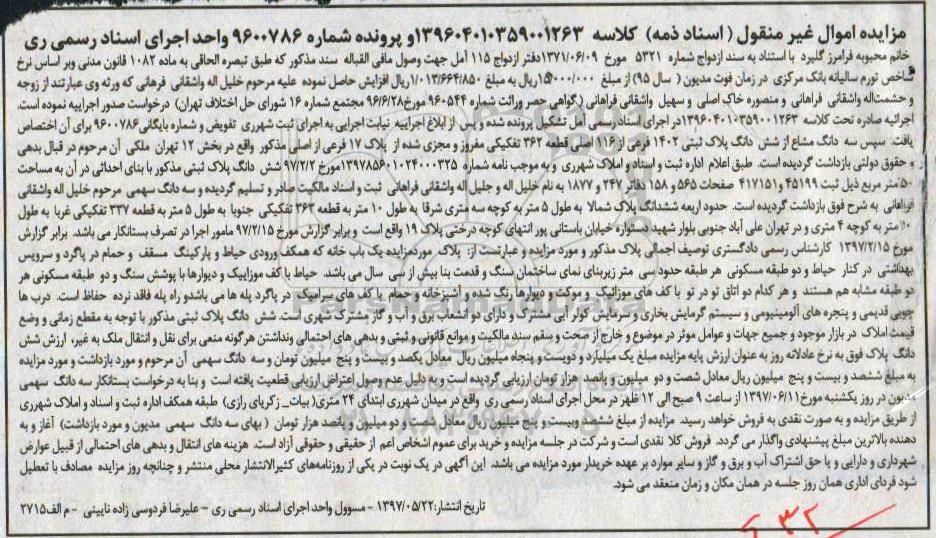 مزایده اموال غیر منقول (اسناد ذمه) کلاسه ۱۳۹۶۰۴۰۱۰۳۵۹۰۰۱۲۶۳و پرونده شماره ۹۶۰۰۷۸۶ واحد اجرای اسناد رسمی ری
خانم محبوبه فرامرز گلیرد با استناد به سند ازدواج شماره ۵۳۲۱ مورخ ۱۳۷۱/۰۶/۰۹دفتر ازدواج ۱۱۵ آمل جهت وصول مافی القباله سند مذکور که طبق تبصره الحاقی به ماده ۱۰۸۲ قانون مدنی وبر اساس نرخ
شاخص تورم سالیانه بانک مرکزی در زمان فوت مدیون ( سال ۹۵) از مبلغ ۱۵٬۰۰۰٬۰۰۰ریال به مبلغ ۱/۰۱۳/۶۶۴/۸۵۰ریال افزایش حاصل نموده علیه مرحوم خلیل اله واشقانی فرهانی که ورثه وی عبارتند از زوجه
و حشمت‌اله واشقانی فراهانی و منصوره خاکی اصلی و سهیل واشقانی فراهانی (گواهی حصر وراثت شماره ۹۶۰۵۴۴ مورخ ۹۶/۶/۲۸ مجتمع شماره ۱۶ شورای حل اختلاف تهران) درخواست صدور اجراییه نموده است.
اجرائیه صادره تحت کلاسه ۱۳۹۶۰۴۰۱۰۳۵۹۰۰۱۲۶۳در اجرای اسناد رسمی آمل تشکیل پرونده شده و پس از ابلاغ اجراییه نیابت اجرایی به اجرای ثبت شهرری تفویض و شماره بایگانی ۹۶۰۰۷۸۶ برای آن اختصاص
یافت. سپس سه دانگ مشاع از شش دانگ پلاک ثبتی ۱۴۰۲ فرعی از ۱۱۶ اصلی قطعه ۳۶۲ تفکیکی مفروز و مجزی شده از پلاک ۱۷ فرعی از اصلی مذکور واقع در بخش ۱۲ تهران ملکی آن مرحوم در قبال بدهی
و حقوق دولتی بازداشت گردیده است. طبق اعلام اداره ثبت و اسناد و املاک شهرری و به موجب نامه شماره ۱۳۹۷۸۵۶۰۱۰۲۴۰۰۰۳۲۵مورخ ۹۷/۲/۲ شش دانگ پلاک ثبتی مذکور با بنای احداثی در آن به مساحت
۵۰ متر مربع ذیل ثبت ۴۵۱۹۹ و ۴۱۷۱۵۱ صفحات ۵۶۵ و ۱۵۸ دفاتر ۲۴۷ و ۱۸۷۷ به نام خلیل اله و جلیل اله واشقانی فراهانی ثبت و اسناد مالکیت صادر و تسلیم گردیده و سه دانگ سهمی مرحوم خلیل اله واشقانی
فراهانی به شرح فوق بازداشت گردیده است. حدود اربعه ششدانگ پلاک شمالا به طول ۵ متر به کوچه سه متری شرقا به طول ۱۰ متر به قطعه ۳۶۳ تفکیکی جنوبا به طول ۵ متر به قطعه ۳۳۷ تفکیکی غربا به طول
۱۰ متر به کوچه ۴ متری و در تهران علی آباد جنوبی بلوار شهید دستواره خیابان باستانی پور انتهای کوچه درختی پلاک ۱۹ واقع است و برابر گزارش مورخ ۹۷/۲/۱۵ مامور اجرا در تصرف بستانکار می باشد. برابر گزارش
مورخ ۱۳۹۷/۲/۱۵ کارشناس رسمی دادگستری توصیف اجمالی پلاک مذکور و مورد مزایده و عبارتست از: پلاک موردمزایده یک باب خانه که همکف ورودی حیاط و پارکینگ مسقف و حمام در پاگرد و سرویس
بهداشتی در کنار حیاط و دو طبقه مسکونی هر طبقه حدود سی متر زیربنای نمای ساختمان سنگ و قدمت بنا بیش از سی سال می باشد. حیاط با کف موزاییک و دیوارها با پوشش سنگ و دو طبقه مسکونی هر
دو طبقه مشابه هم هستند و هر کدام دو اتاق تو در تو با کف های موزائیک و موکت و دیوارها رنگ شده و آشپزخانه و حمام با کف های سرامیک در پاگرد پله ها می باشدو راه پله فاقد نرده حفاظ است. درب ها
چوبی قدیمی و پنجره های آلومینیومی و سیستم گرمایش بخاری و سرمایش کولر آبی مشترک و دارای دو انشعاب برق و آب و گاز مشترک شهری است. شش دانگ پلاک ثبتی مذکور با توجه به مقطع زمانی و وضع
قیمت املاک در بازار موجود و جمیع جهات و عوامل موثر در موضوع و خارج از صحت و سقم سند مالکیت و موانع قانونی و ثبتی و بدهی های احتمالی ونداشتن هرگونه منعی برای نقل و انتقال ملک به غیر، ارزش شش
دانگ پلاک فوق به نرخ عادلانه روز به عنوان ارزش پایه مزایده مبلغ یک میلیارد و دویست و پنجاه میلیون ریال معادل یکصد و بیست و پنج میلیون تومان و سه دانگ سهمی آن مرحوم و مورد بازداشت و مورد مزایده
به مبلغ ششصد و بیست و پنج میلیون ریال معادل شصت و دو میلیون و پانصد هزار تومان ارزیابی گردیده است و به دلیل عدم وصول اعتراض ارزیابی قطعیت یافته است و بنا به درخواست بستانکار سه دانگ سهمی
مدیون در روز یکشنبه مورخ ۱۳۹۷/۰۶/۱۱ از ساعت ۹ صبح الی ۱۲ ظهر در محل اجرای اسناد رسمی ری واقع در میدان شهرری ابتدای ۲۴ متری( بیات_ زکریای رازی) طبقه همکف اداره ثبت و اسناد و املاک شهرری
از طریق مزایده و به صورت نقدی به فروش خواهد رسید. مزایده از مبلغ ششصد وبیست و پنج میلیون ریال معادل شصت و دو میلیون و پانصد هزار تومان ( بهای سه دانگ سهمی مدیون و مورد بازداشت) آغاز و به
دهنده بالاترین مبلغ پیشنهادی واگذار می گردد. فروش کلا نقدی است و شرکت در جلسه مزایده و خرید برای عموم اشخاص اعم از حقیقی و حقوقی آزاد است. هزینه های انتقال و بدهی های احتمالی از قبیل عوارض
شهرداری و دارایی و یا حق اشتراک آب و برق و گاز و سایر موارد بر عهده خریدار مورد مزایده می باشد. این آگهی در یک نوبت در یکی از روزنامه‌های کثیرالانتشار محلی منتشر و چنانچه روز مزایده مصادف با تعطیل
شود فردای اداری همان روز جلسه در همان مکان و زمان منعقد می شود.
تاریخ انتشار: ۱۳۹۷/۰۵/۲۲ - مسوول واحد اجرای اسناد رسمی ری - علیرضا فردوسی زاده نایینی - م الف ۲۷۱۵